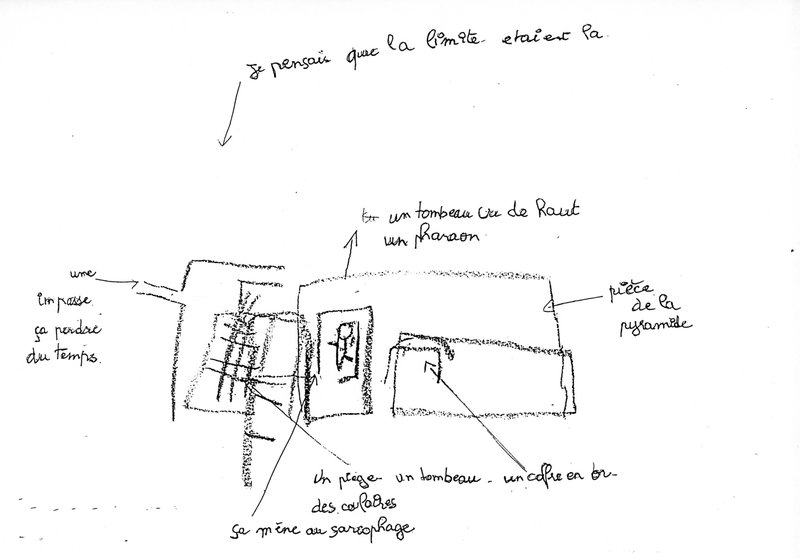 Je pensais que la limite etaient la
un tombeau vu de haut
un pharaon
une
impasse
ça perdre
du temps.
pièce
de la
pyramide
un piège - un tombeau - un coffre en or -
des couloires
ça mène au sarcophage